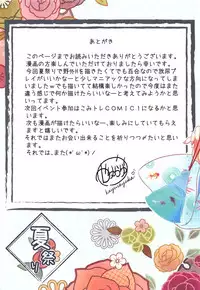 あとがき
このページまでお読みいただきありがとうございます。
漫画の方楽しんでいただけておりましたら幸いです。
今回夏祭りで野外Hを描きたくてでも百合なので放尿プ
レイがいいかなーと少しマニアックな方向になってしまい
ましたwでも描けて結構楽しかったので今度はまた
違う感じで何か描けたらいいなーと考えてみようかと思っ
ております。
次回イベント参加はごみトレCOMIC1になるかと思います。
次も漫画が描けたらいいなー、楽しみにしていてもらえま
すと嬉しいです。
それではまたお会い出来ることを祈りつつ〆たいと思いま
す。
それでは、また(*´ω`*)ノ
夏
祭
り